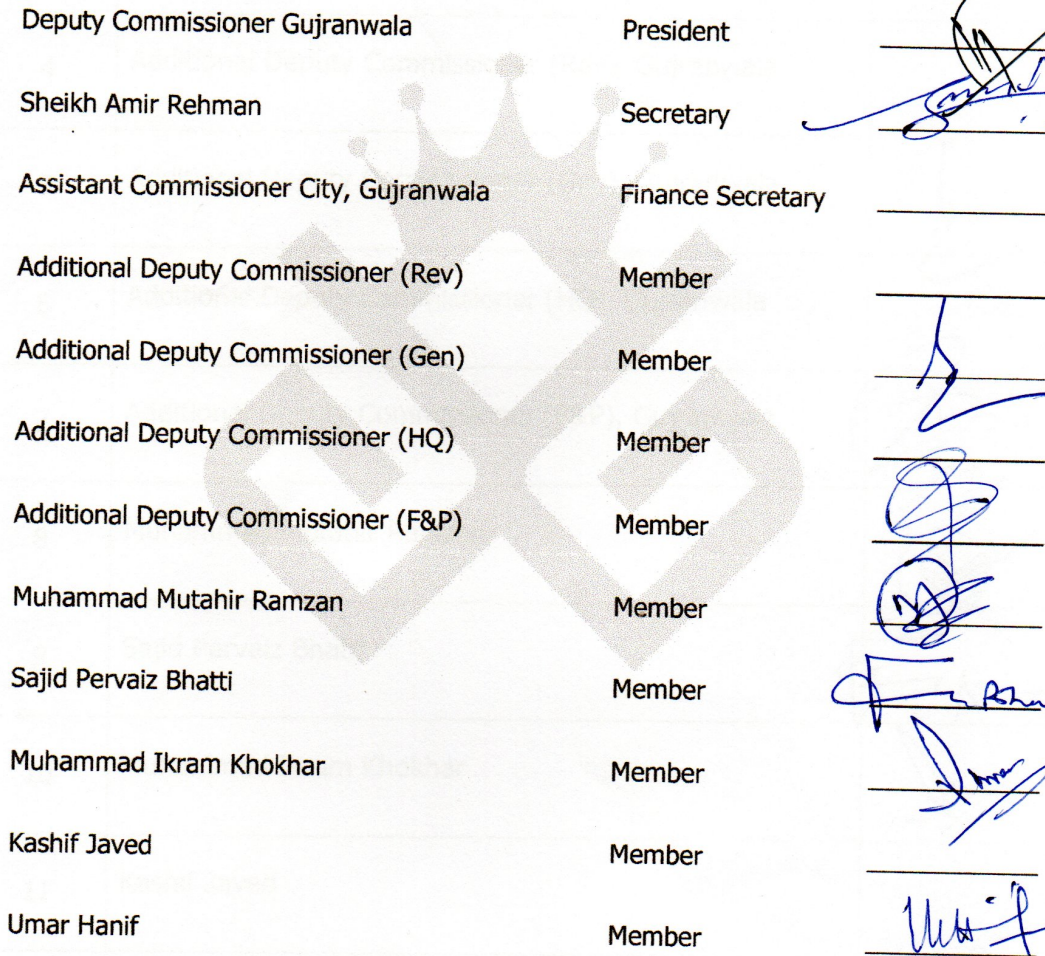 Deputy Commissioner Gujranwala President
Sheikh Amir Rehman Secretary
Assistant Commissioner City, Gujranwala Finance Secretary
Additional Deputy Commissioner (Rev) Member
Additional Deputy Commissioner (Gen) Member
Additional Deputy Commissioner (HQ) Member
Additional Deputy Commissioner (F&P) Member
Muhammad Mutahir Ramzan Member
Sajid Pervaiz Bhatti Member
Muhammad Ikram Khokhar Member
Kashif Javed Member
Umar Hanif Member